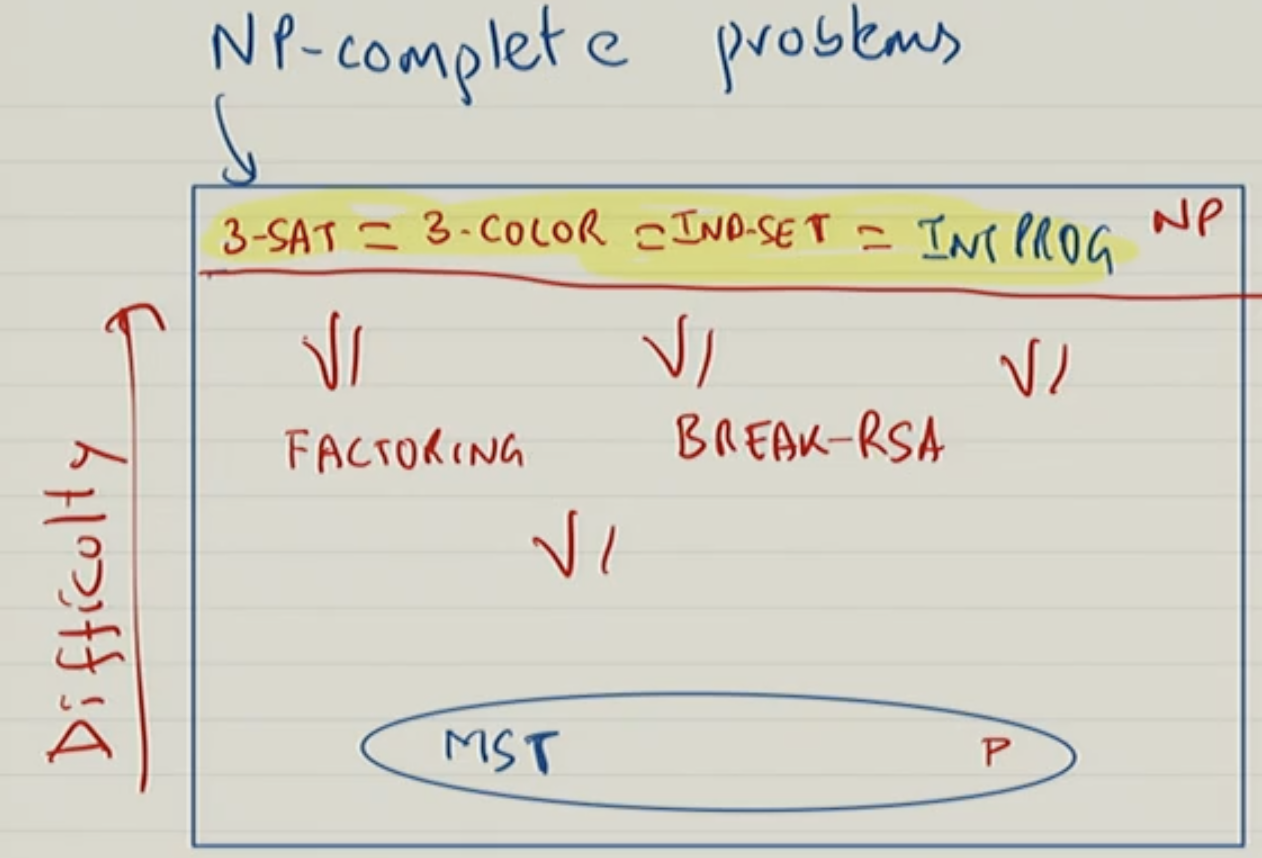 NP-complete problems
3-SAT = 3-COLOR = IND-SET = INTPROG NP
√I √I √I
FACTORING BREAK-RSA
√I
MST P
Difficolty